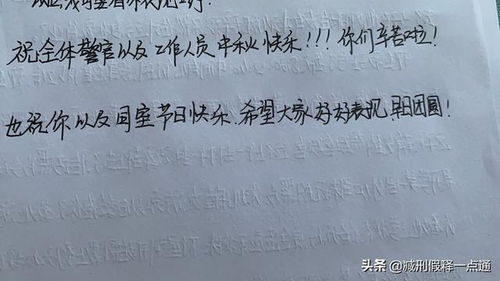 祝全体警官以及工作人员中秋快乐!!!你们辛苦啦!
也祝你以及同室节日快乐.希望大家好好表现,早日团圆!
头条@减刑假释一点通